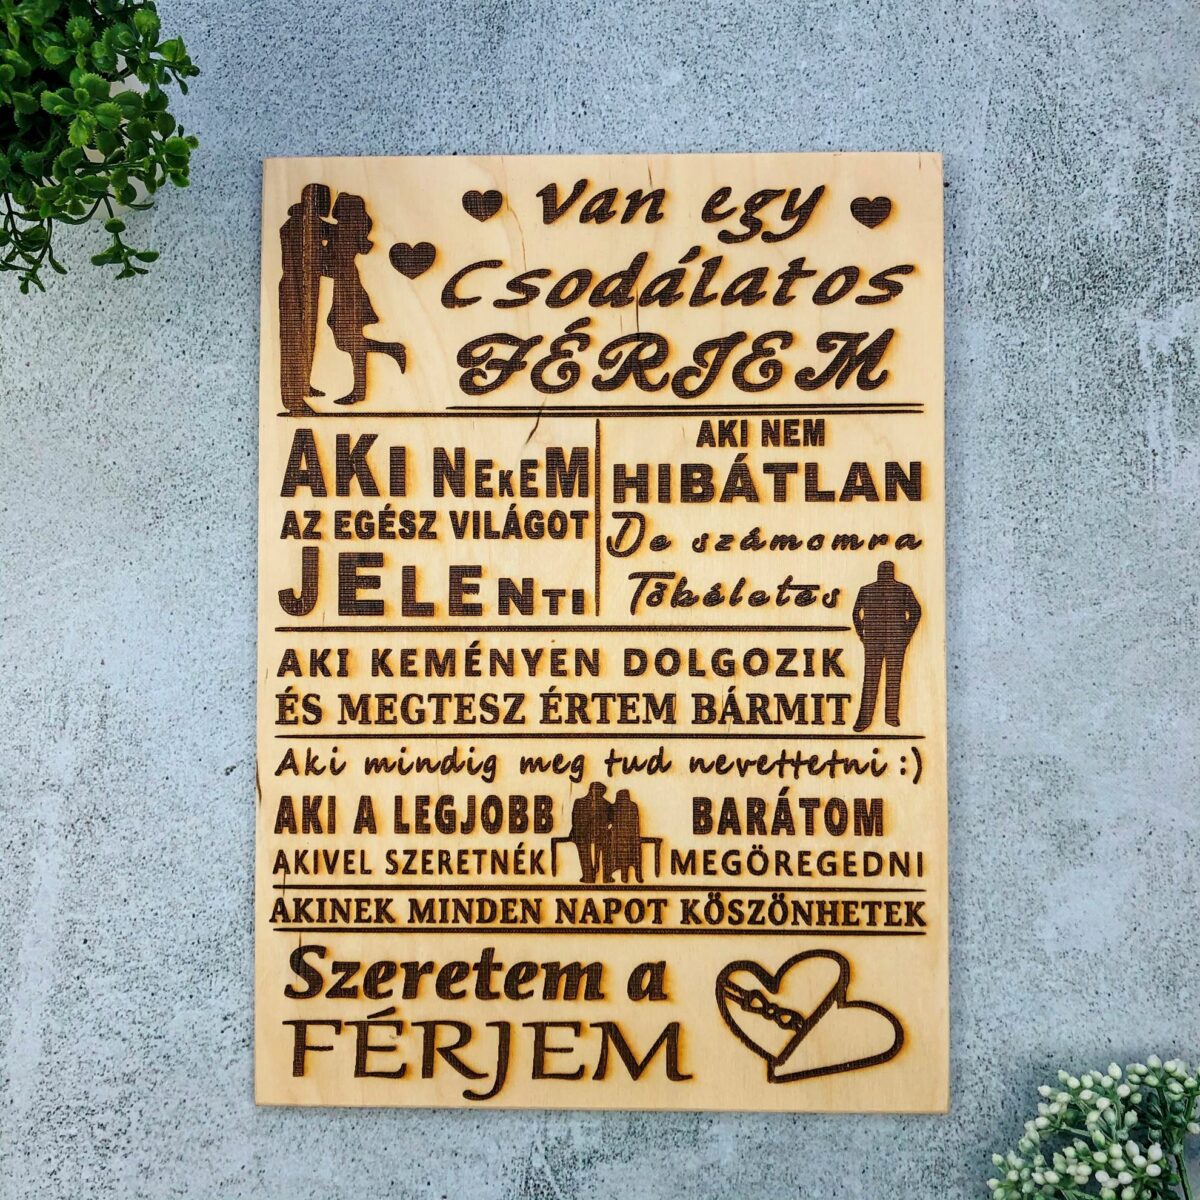 Van egy
Csodálatos
FÉRJEM
AKI NEKEM
AZ EGÉSZ VILÁGOT
JELENTI
AKI NEM
HIBÁTLAN
De számomra
Tökéletes
AKI KEMÉNYEN DOLGOZIK
ÉS MEGTESZ ÉRTEM BÁRMIT
Aki mindig meg tud nevettetni :)
AKI A LEGJOBB BARÁTOM
AKIVEL SZERETNÉK MEGÖREGEDNI
AKINEK MINDEN NAPOT KÖSZÖNHETEK
Szeretem a
FÉRJEM